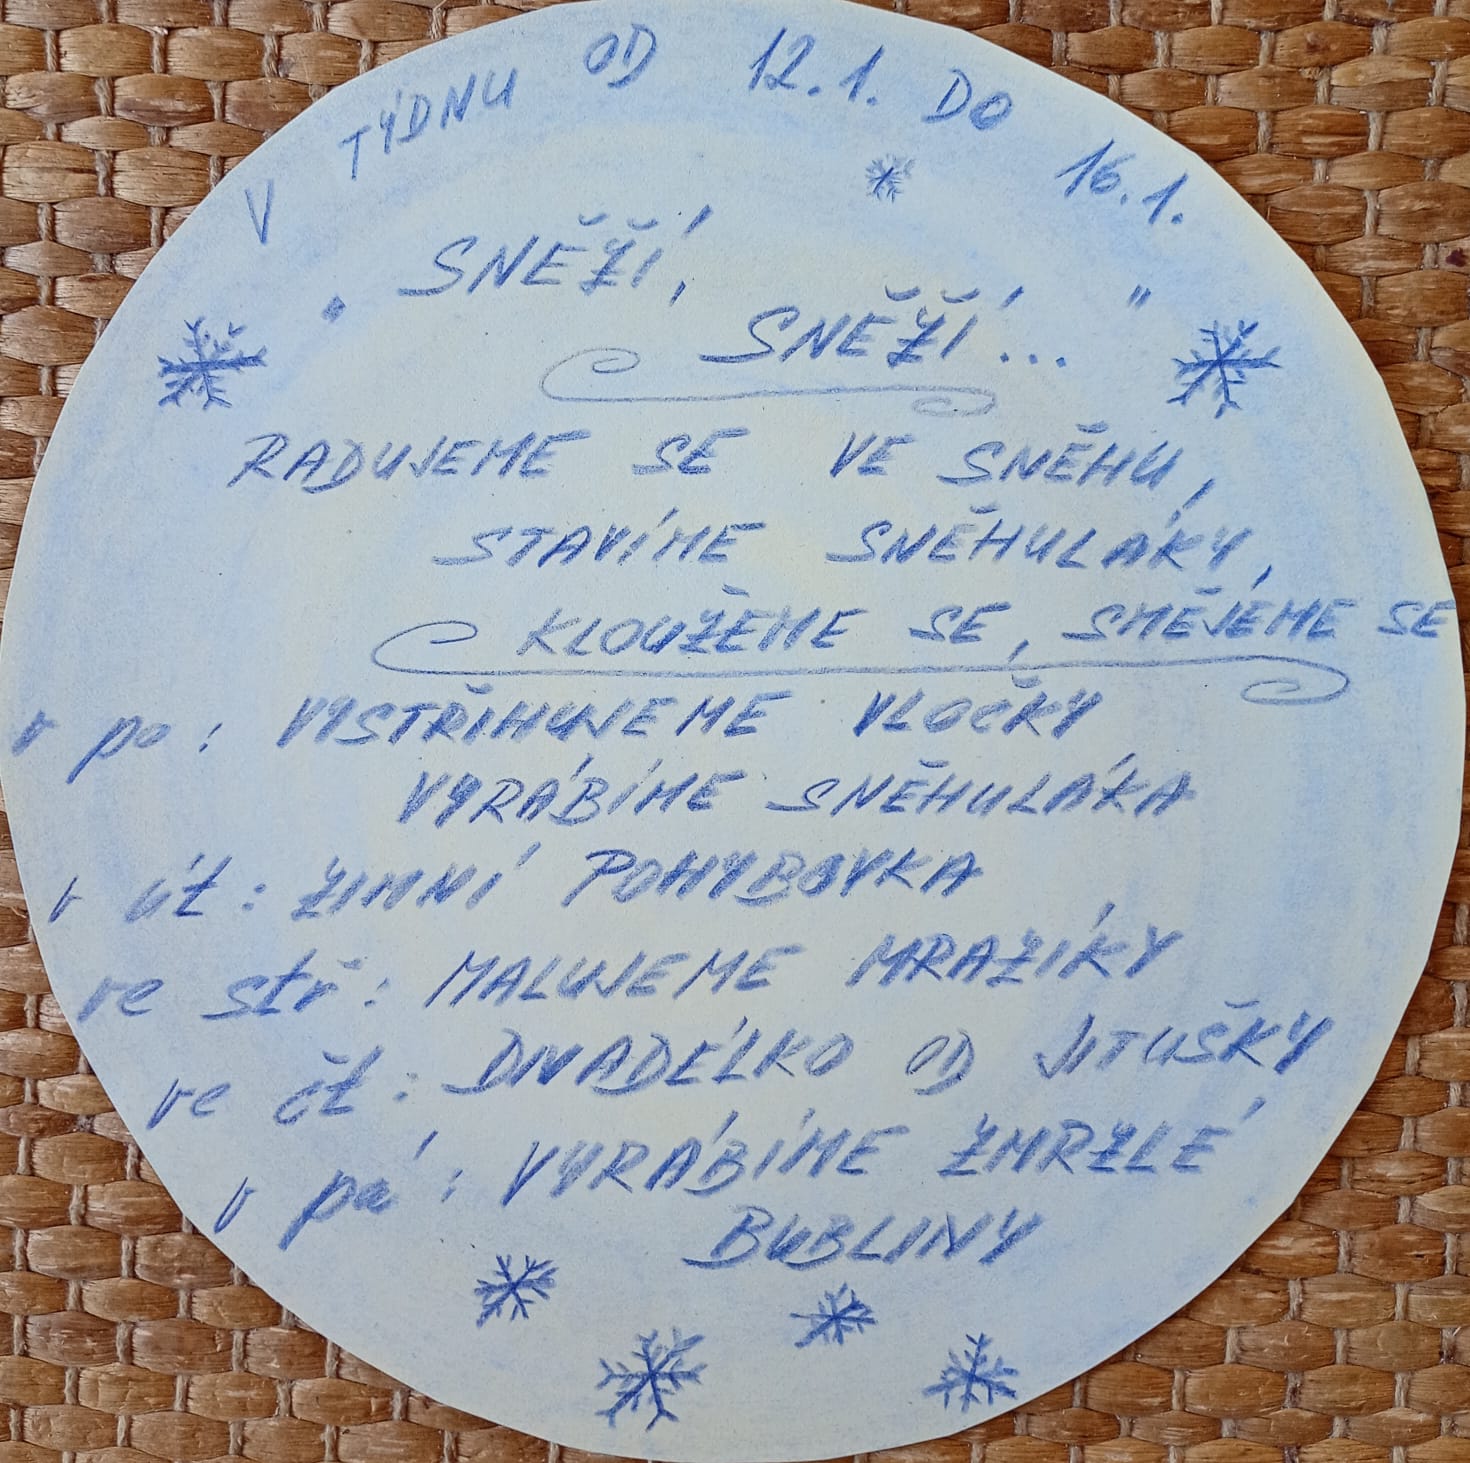 V TÝDNU OD 12.1. DO 16.1.
„SNĚŽÍ,
SNĚŽÍ..."
RADUJEME SE VE SNĚHU,
STAVÍME SNĚHULÁKY,
KLOUŽEME SE, SMĚJEME SE
v po: VYSTŘIHUJEME VLOČKY
VYRÁBÍME SNĚHULÁKA
v út: ZIMNÍ POHYBOVKA
ve stř: MALUJEME MRAZÍKY
ve čt: DIVADÉLKO OD JITUŠKY
v pá: VYRÁBÍME ZMRZLÉ
BUBLINY